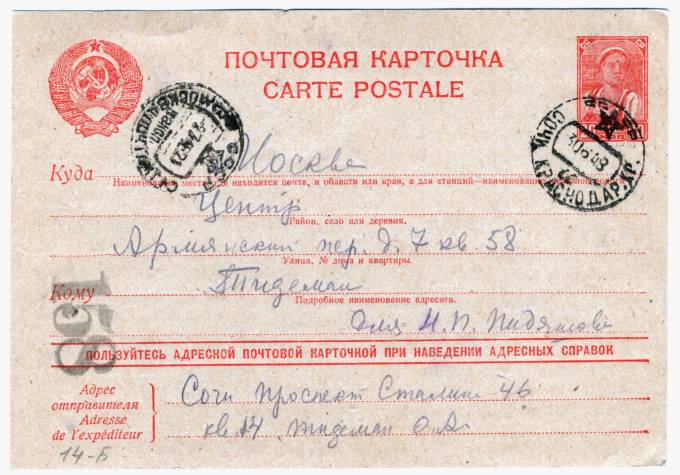 ПОЧТОВАЯ КАРТОЧКА
CARTE POSTALE
СОЧИ КРАСНОДАР. КР.
Куда Москва
Наименование места, где находится почта, и области или края, а для станций—наименование
Центр
Район, село или деревня.
Армянский пер. д. 7 кв. 58
Улица, № дома и квартиры.
Кому Тидеман
Подробное наименование адресата.
для Н. П.
158
ПОЛЬЗУЙТЕСЬ АДРЕСНОЙ ПОЧТОВОЙ КАРТОЧКОЙ ПРИ НАВЕДЕНИИ АДРЕСНЫХ СПРАВОК
Адрес отправителя
Adresse de l'expéditeur
Сочи проспект Сталина 46
кв 14 Тидеман О.А.
14-Б